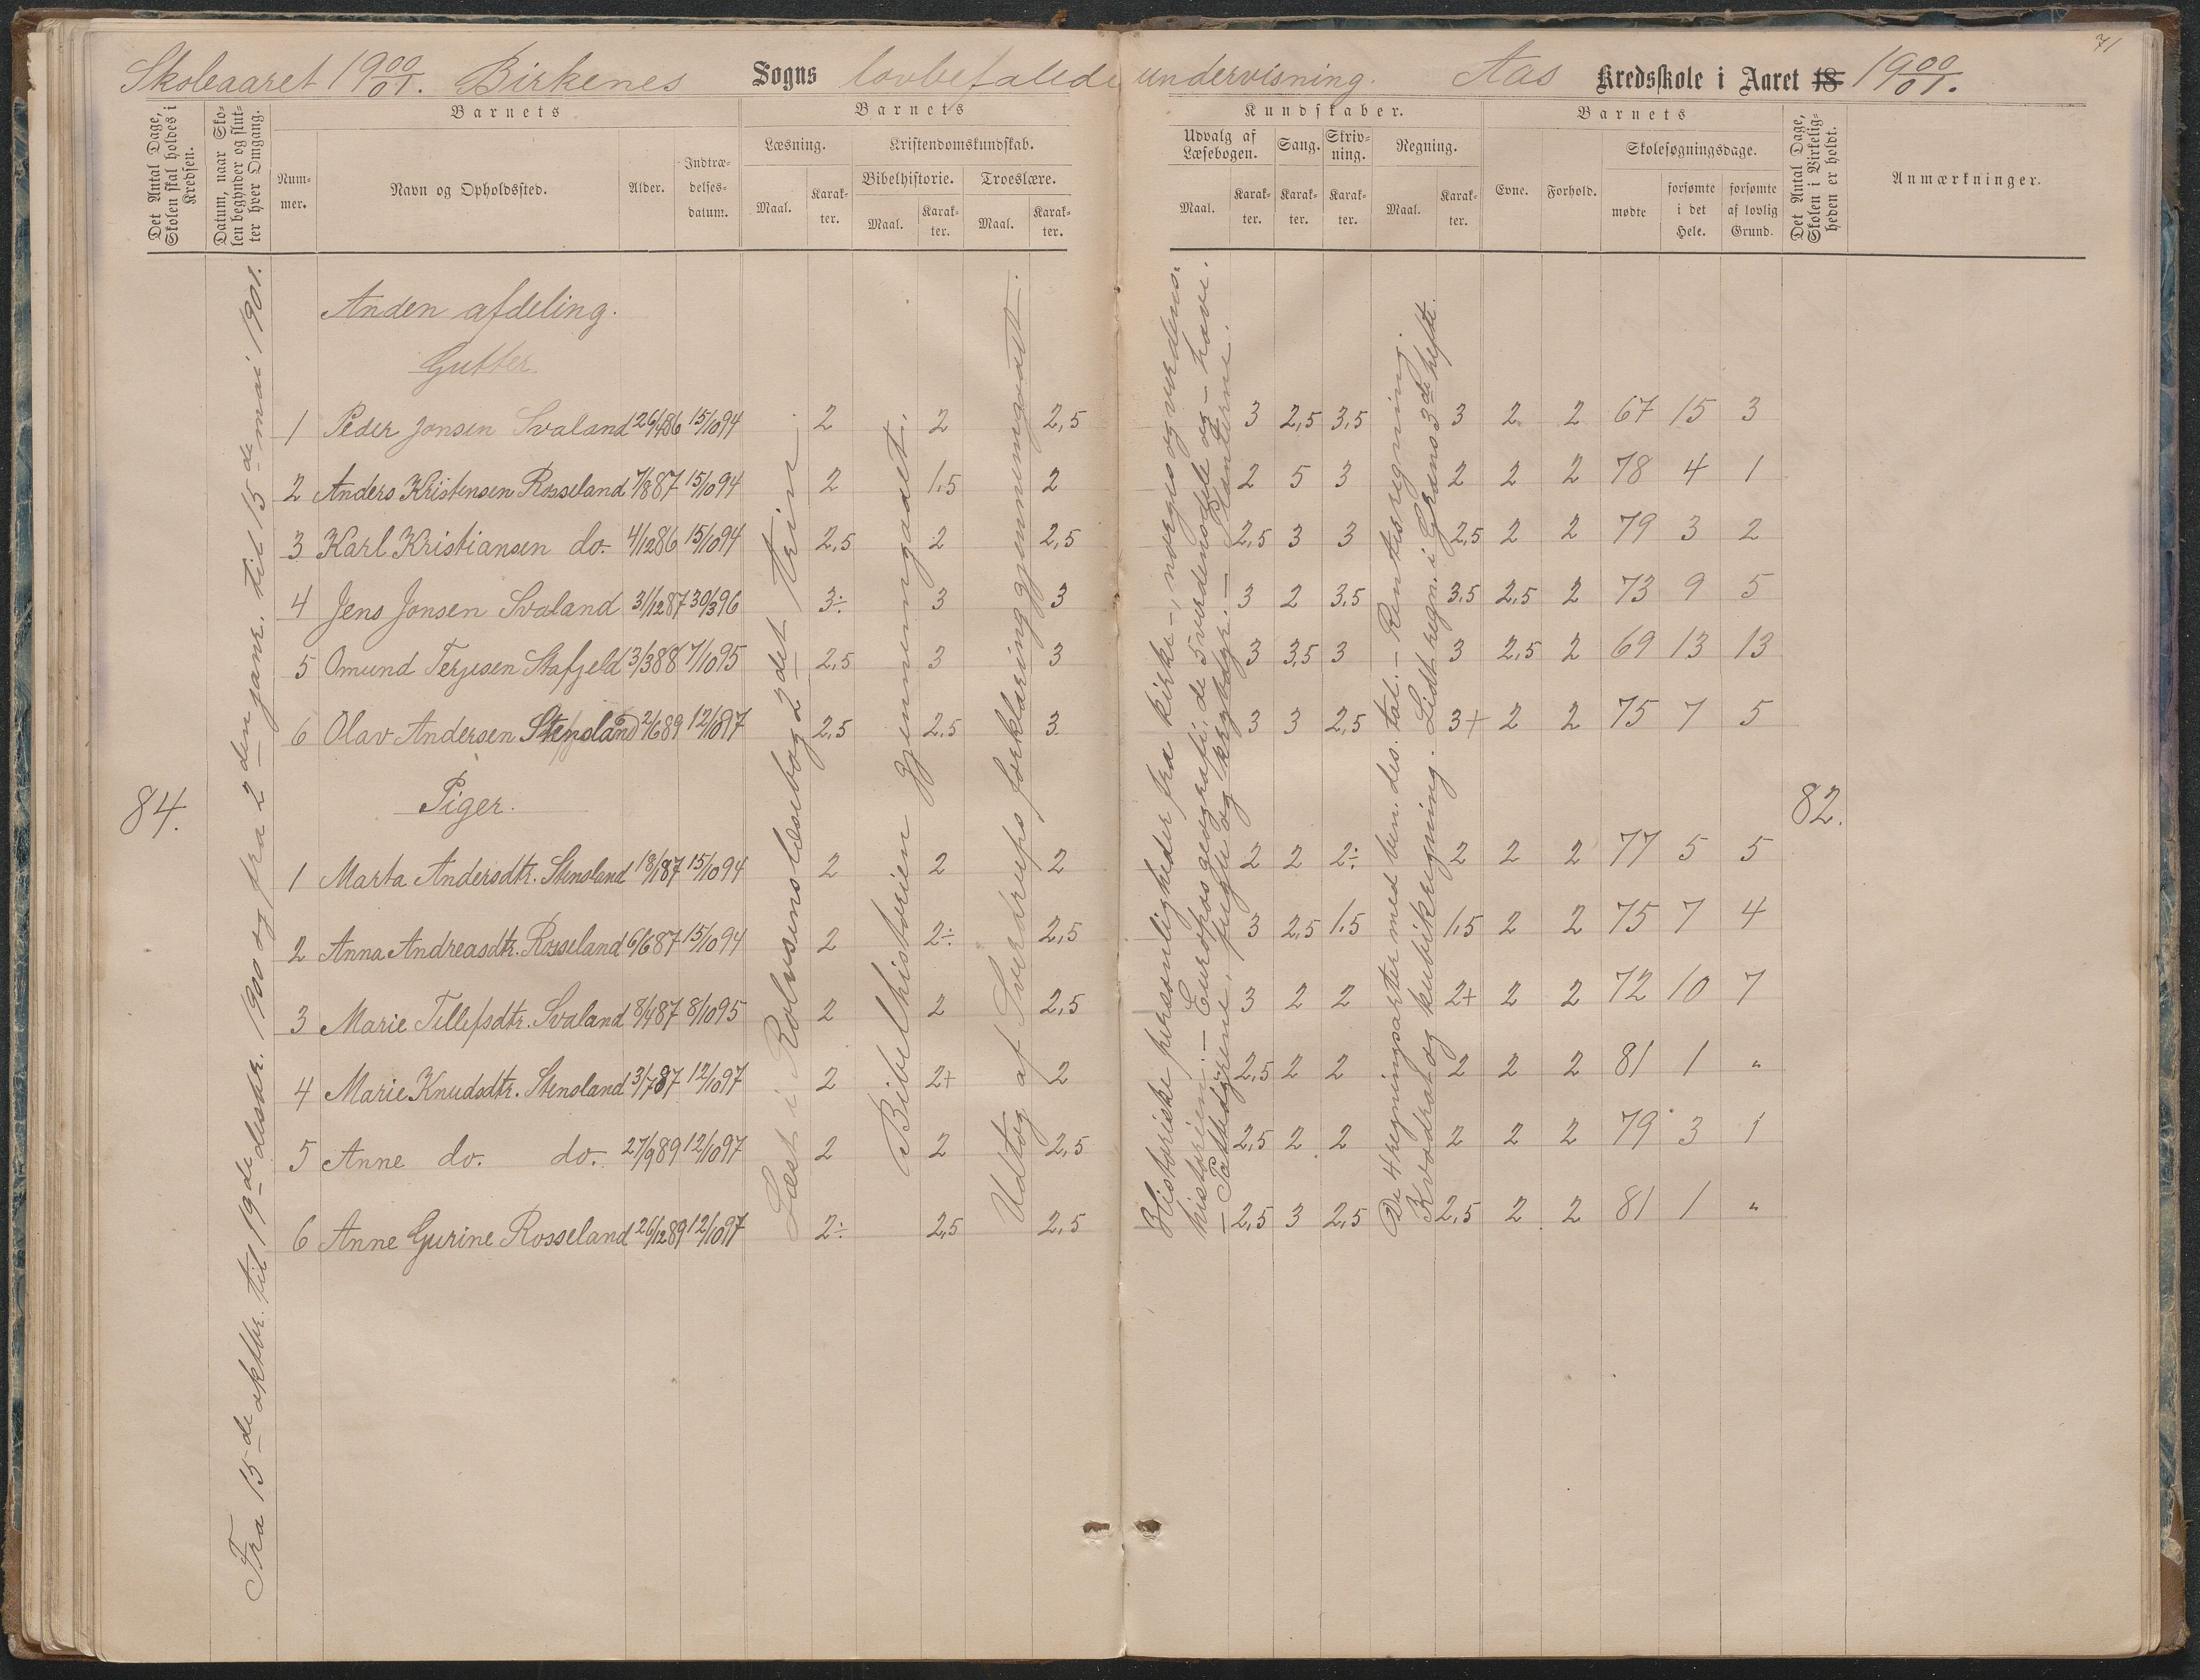 71
Skoleaaret 1900/01. Birkenes Sogns lovbefalede undervisning. Aas Kredsskole i Aaret 18 1900/01.
Det Antal Dage, Skolen skal holdes i Kredsen.
Datum, naar Skolen begynder og slutter hver Omgang.
Barnets
Nummer.
Navn og Opholdssted.
Alder.
Indtrædelsesdatum.
Barnets
Læsning.
Maal.
Karakter.
Kristendomskundskab.
Bibelhistorie.
Maal.
Karakter.
Troeslære.
Maal.
Karakter.
Kundskaber.
Udvalg af Læsebogen.
Maal.
Karakter.
Sang.
Karakter.
Skrivning.
Karakter.
Regning.
Maal.
Karakter.
Barnets
Evne.
Forhold.
Skolesøgningsdage.
mødte
forsømte i det Hele.
forsømte af lovlig Grund.
Det Antal Dage, Skolen i Virkeligheden er holdt.
Anmærkninger.
84.
Fra 15de oktbr. til 19de desbr. 1900 og fra 2den janr. til 15de mai 1901.
Læst i Rolvsens læsebog 2det trin.
Bibelhistorien gjennemgaaet.
Udtog af Sverdrups forklaring gjennemgaaet.
Historiske personligheder fra kirke-, norges og verdenshistorien. — Europas geografi, de 5 verdensdele og — have.
— Pattedyrene, fugle og krybdyr. — Planterne.
De 4 regningsarter med ben. des. tal. — Rentesregning.
Kvadrat og kubikregning. Lidt regn. i Græns 3de hefte.
82.
Anden afdeling.
Gutter.
1 Peder Jonsen Svaland 26/4 86 15/10 94 2 2 2,5 3 2,5 3,5 3 2 2 67 15 3
2 Anders Kristensen Rosseland 7/8 87 15/10 94 2 1,5 2 2 5 3 2 2 2 78 4 1
3 Karl Kristiansen do. 4/12 86 15/10 94 2,5 2 2,5 2,5 3 3 2,5 2 2 79 3 2
4 Jens Jonsen Svaland 31/12 87 30/3 96 3÷ 3 3 3 2 3,5 3,5 2,5 2 73 9 5
5 Omund Terjesen Stafjeld 3/3 88 7/10 95 2,5 3 3 3 3,5 3 3 2,5 2 69 13 13
6 Olav Andersen Stensland 2/6 89 12/10 97 2,5 2,5 3 3 3 2,5 3+ 2 2 75 7 5
Piger.
1 Marta Andersdtr. Stensland 18/1 87 15/10 94 2 2 2 2 2 2÷ 2 2 2 77 5 5
2 Anna Andreasdtr. Rosseland 6/6 87 15/10 94 2 2÷ 2,5 3 2,5 1,5 1,5 2 2 75 7 4
3 Marie Tellefsdtr. Svaland 8/4 87 8/10 95 2 2 2,5 3 2 2 2+ 2 2 72 10 7
4 Marie Knudsdtr. Stensland 3/7 87 12/10 97 2 2+ 2 2,5 2 2 2 2 2 81 1 "
5 Anne do. do. 27/9 89 12/10 97 2 2 2,5 2,5 2 2 2 2 2 79 3 1
6 Anne Gurine Rosseland 26/12 89 12/10 97 2÷ 2,5 2,5 2,5 3 2,5 2,5 2 2 81 1 "